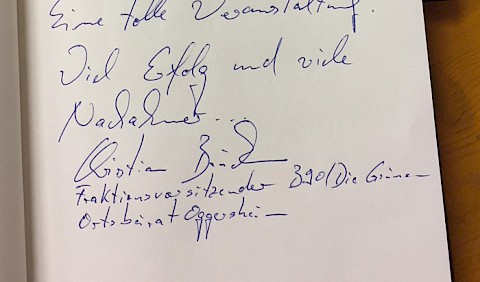 Eine tolle Veranstaltung.
Viel Erfolg und viele
Nachahmer...
Christian
Fraktionsvorsitzender B90/Die Grünen
Ortsbeirat Oggersheim